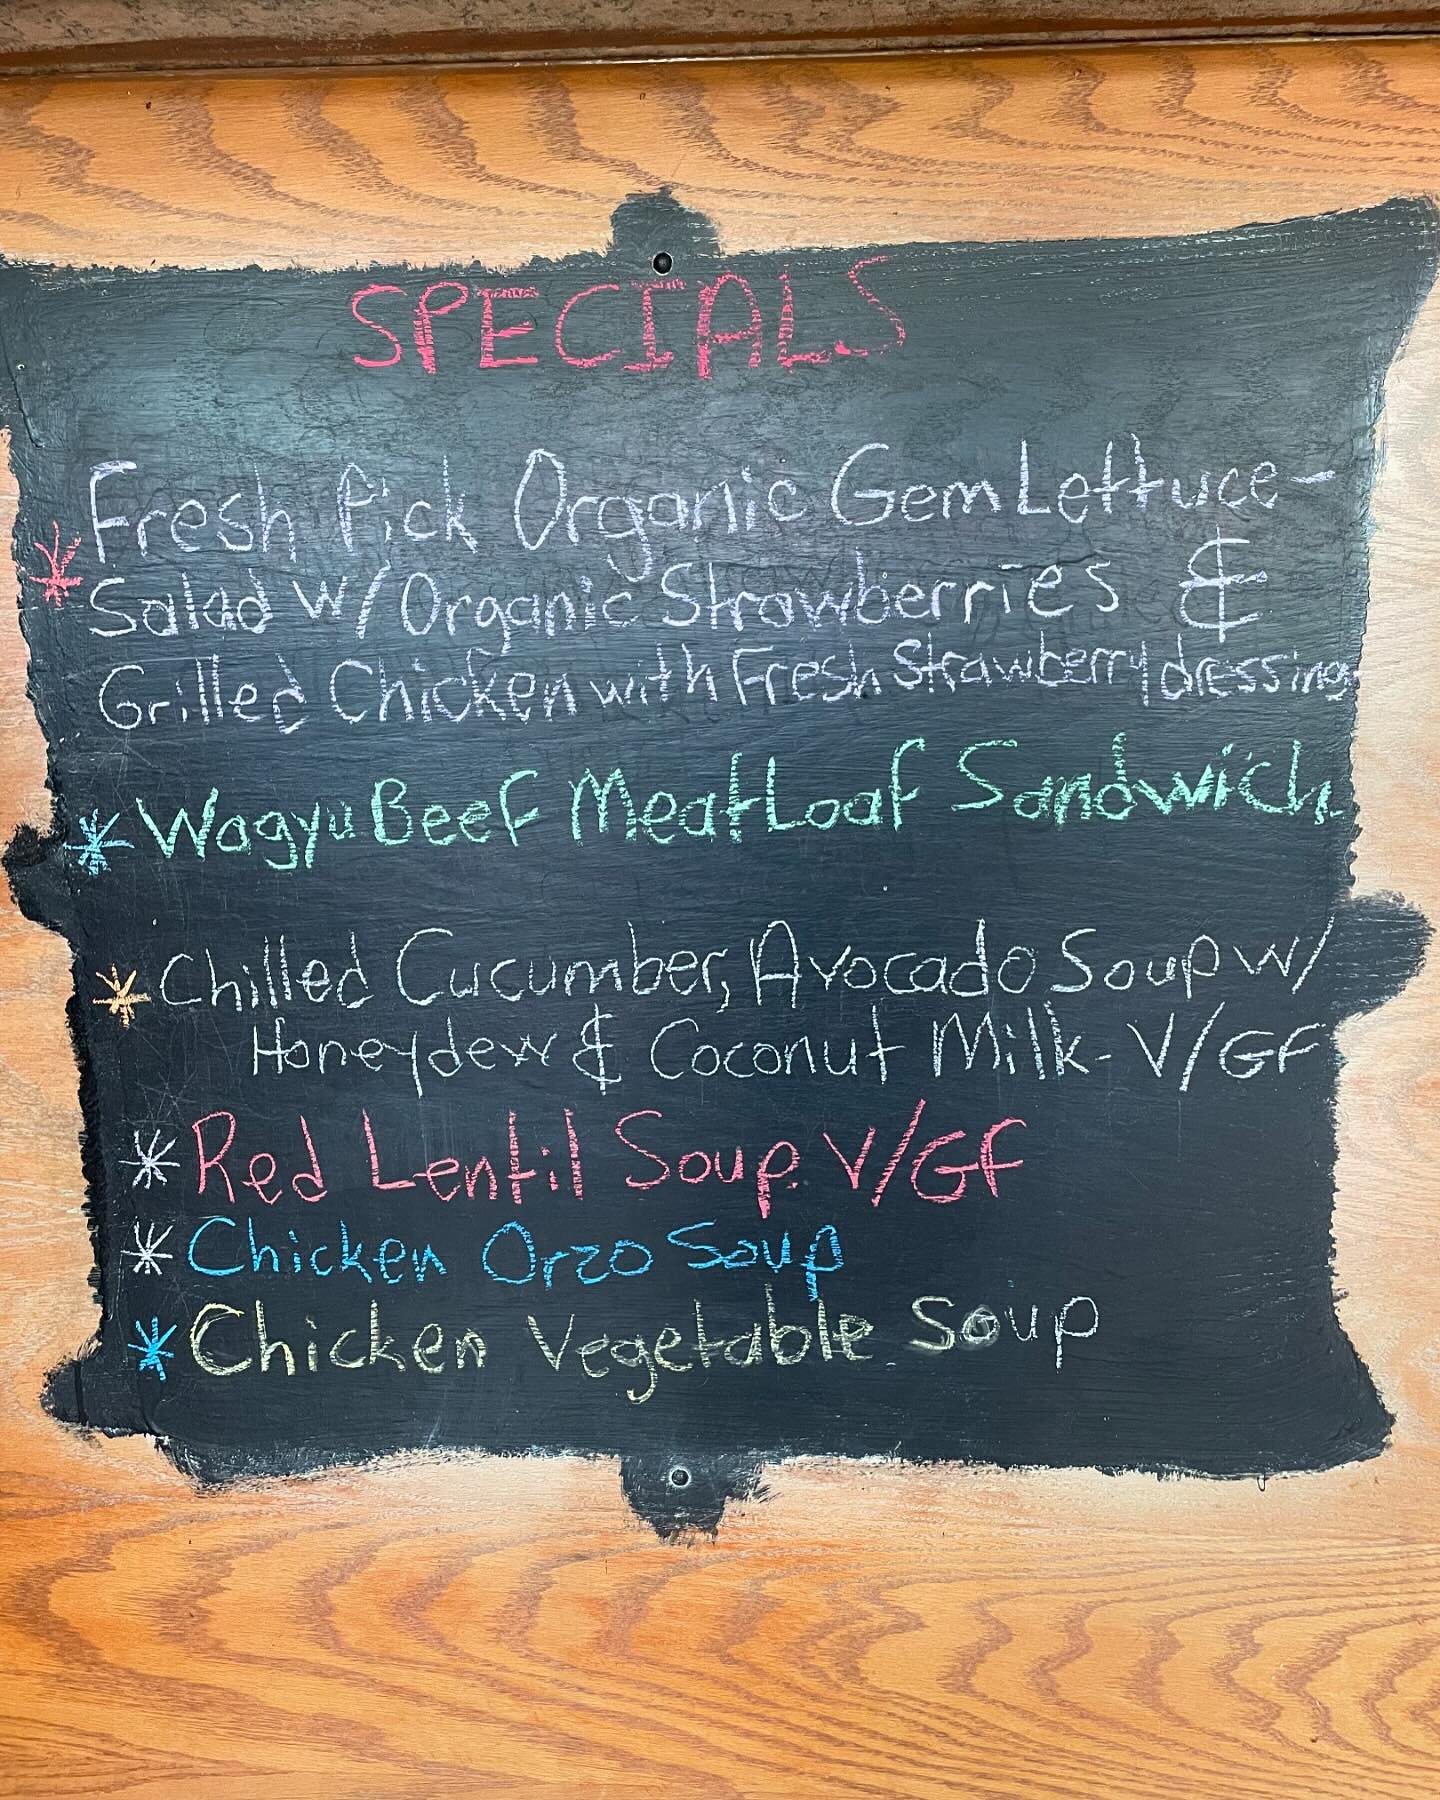 SPECIALS
Fresh Pick Organic Gem Lettuce-
* Salad w/ Organic Strawberries &
Grilled Chicken with Fresh Strawberry dressing
* Wagyu Beef Meat Loaf Sandwich.
* Chilled Cucumber, Avocado Soup w/
Honeydew & Coconut Milk- V/GF
* Red Lentil Soup. V/GF
* Chicken Orzo Soup
* Chicken Vegetable Soup